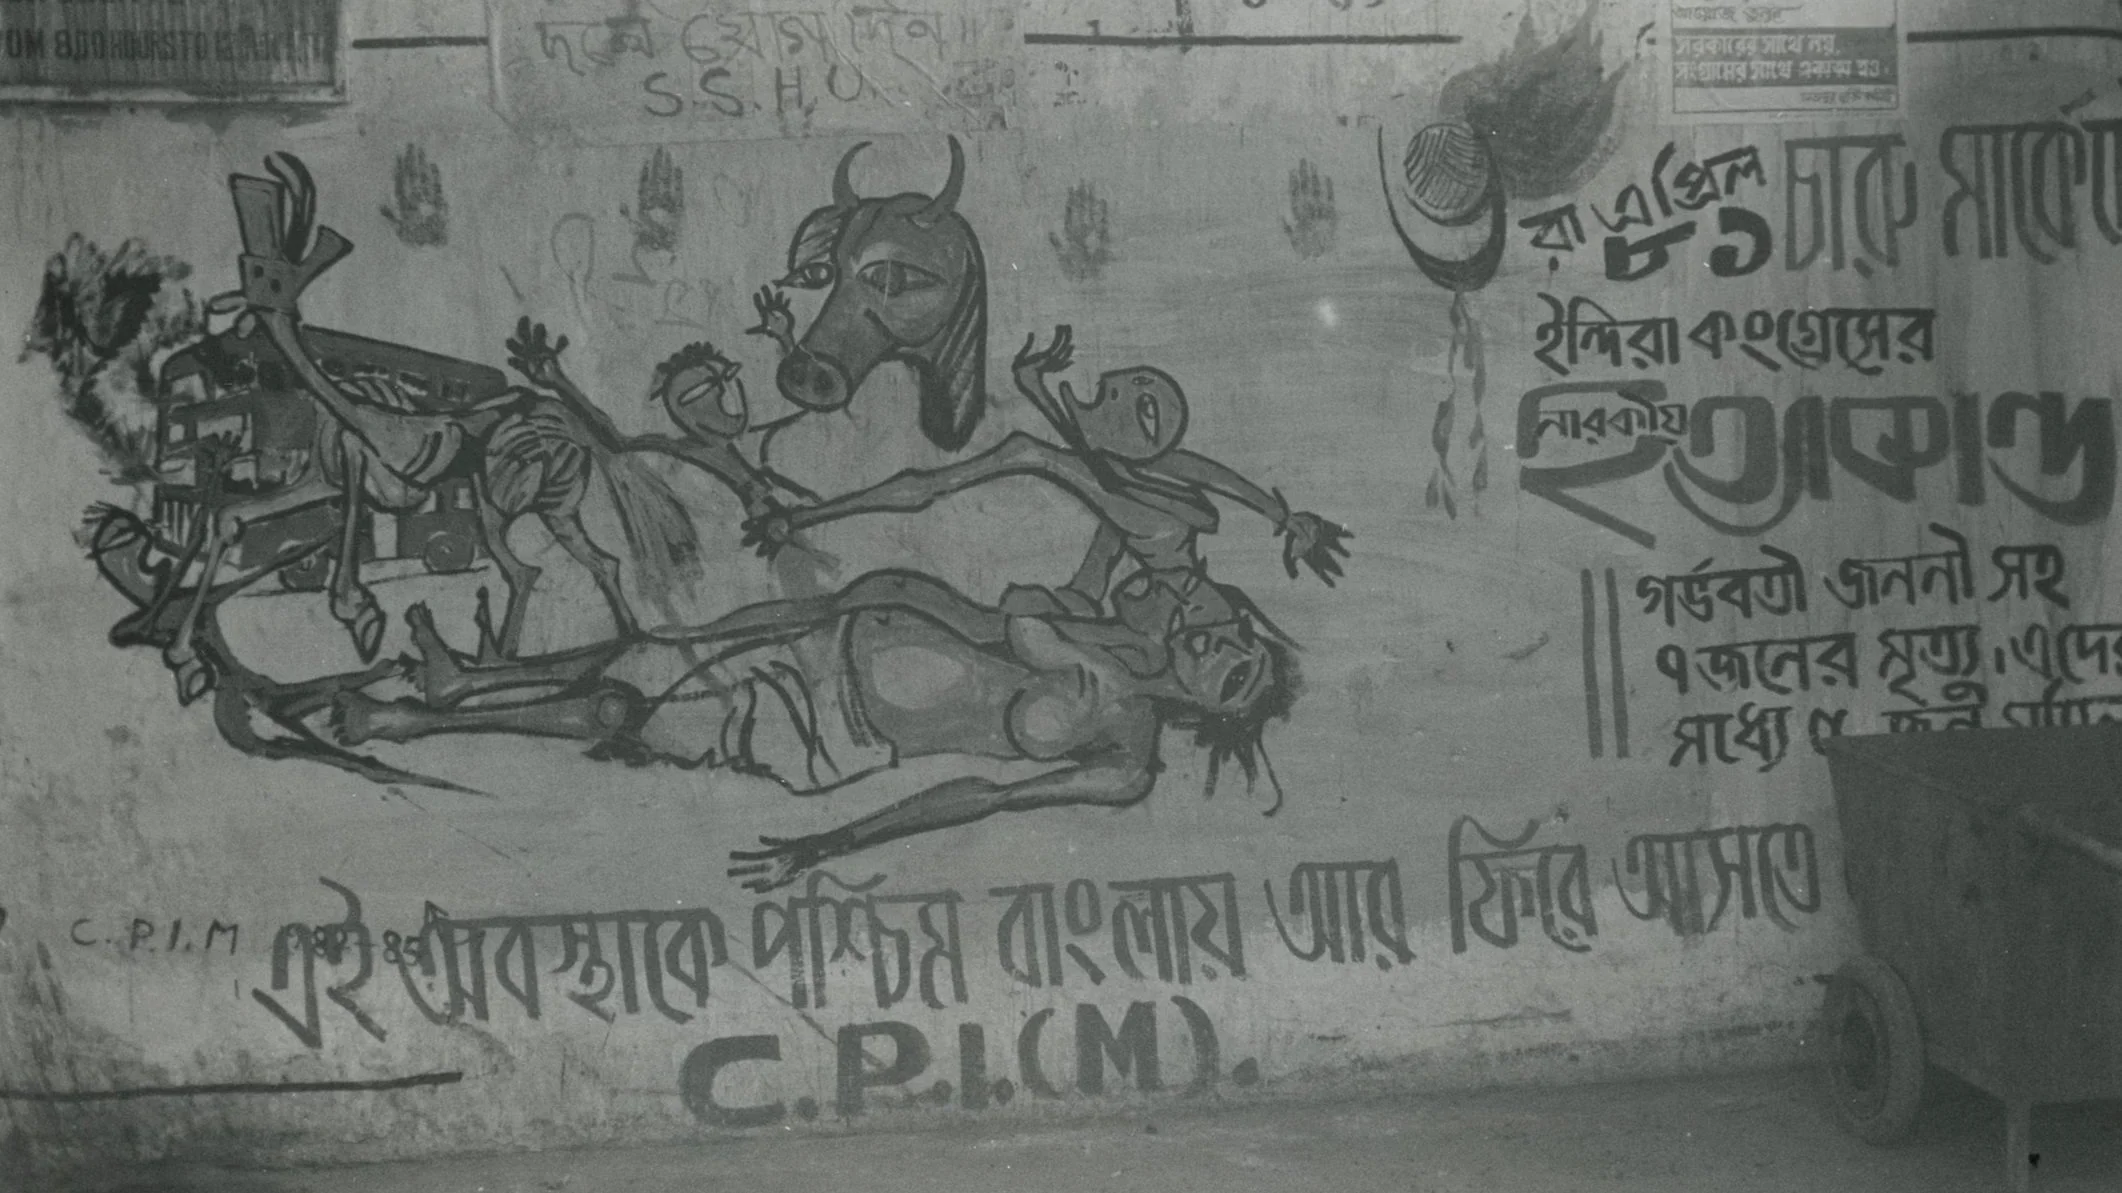 দলে যোগ দিন॥
S.S.H.U
সরকারের সাথে নয়,
সংগ্রামের সাথে একাত্ম হও।
রা এপ্রিল
৮১
চারু মার্কেটে
ইন্দিরা কংগ্রেসের
নারকীয়
হত্যাকাণ্ড
গর্ভবতী জননী সহ
৭ জনের মৃত্যু। এদের
মধ্যে
জন
C.P.I.M 82-85
এই অবস্থাকে পশ্চিম বাংলায় আর ফিরে আসতে
C.P.I.(M).